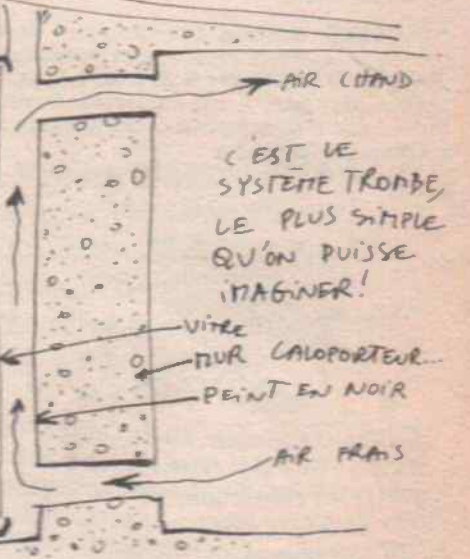 AIR CHAUD
C'EST LE
SYSTÈME TROMBE,
LE PLUS SIMPLE
QU'ON PUISSE
IMAGINER!
VITRE
MUR CALOPORTEUR...
PEINT EN NOIR
AIR FRAIS